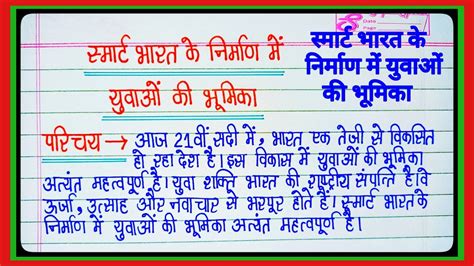 Date
Page
स्मार्ट भारत के निर्माण में
युवाओं की भूमिका
स्मार्ट भारत के
निर्माण में युवाओं
की भूमिका
परिचय → आज 21वीं सदी में, भारत एक तेजी से विकसित
हो रहा देश है। इस विकास में युवाओं की भूमिका
अत्यंत महत्वपूर्ण है। युवा शक्ति भारत की राष्ट्रीय संपत्ति है। वे
ऊर्जा, उत्साह और नवाचार से भरपूर होते हैं। स्मार्ट भारत के
निर्माण में युवाओं की भूमिका अत्यंत महत्वपूर्ण है।